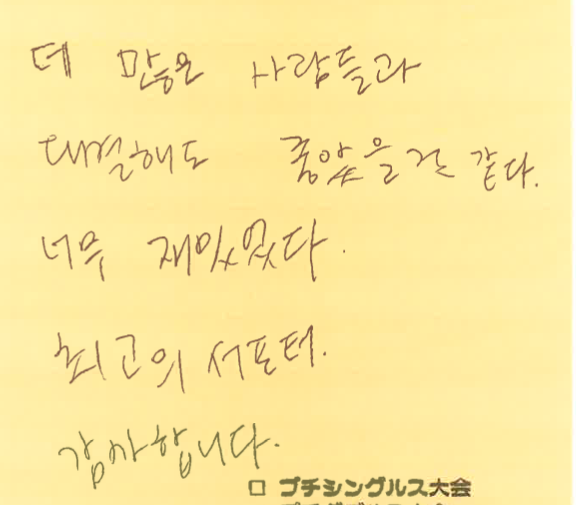 더 많은 사람들과
대결해도 좋았을 것 같다.
너무 재밌었다.
최고의 서포터.
감사합니다.
□ プチシングルス大会